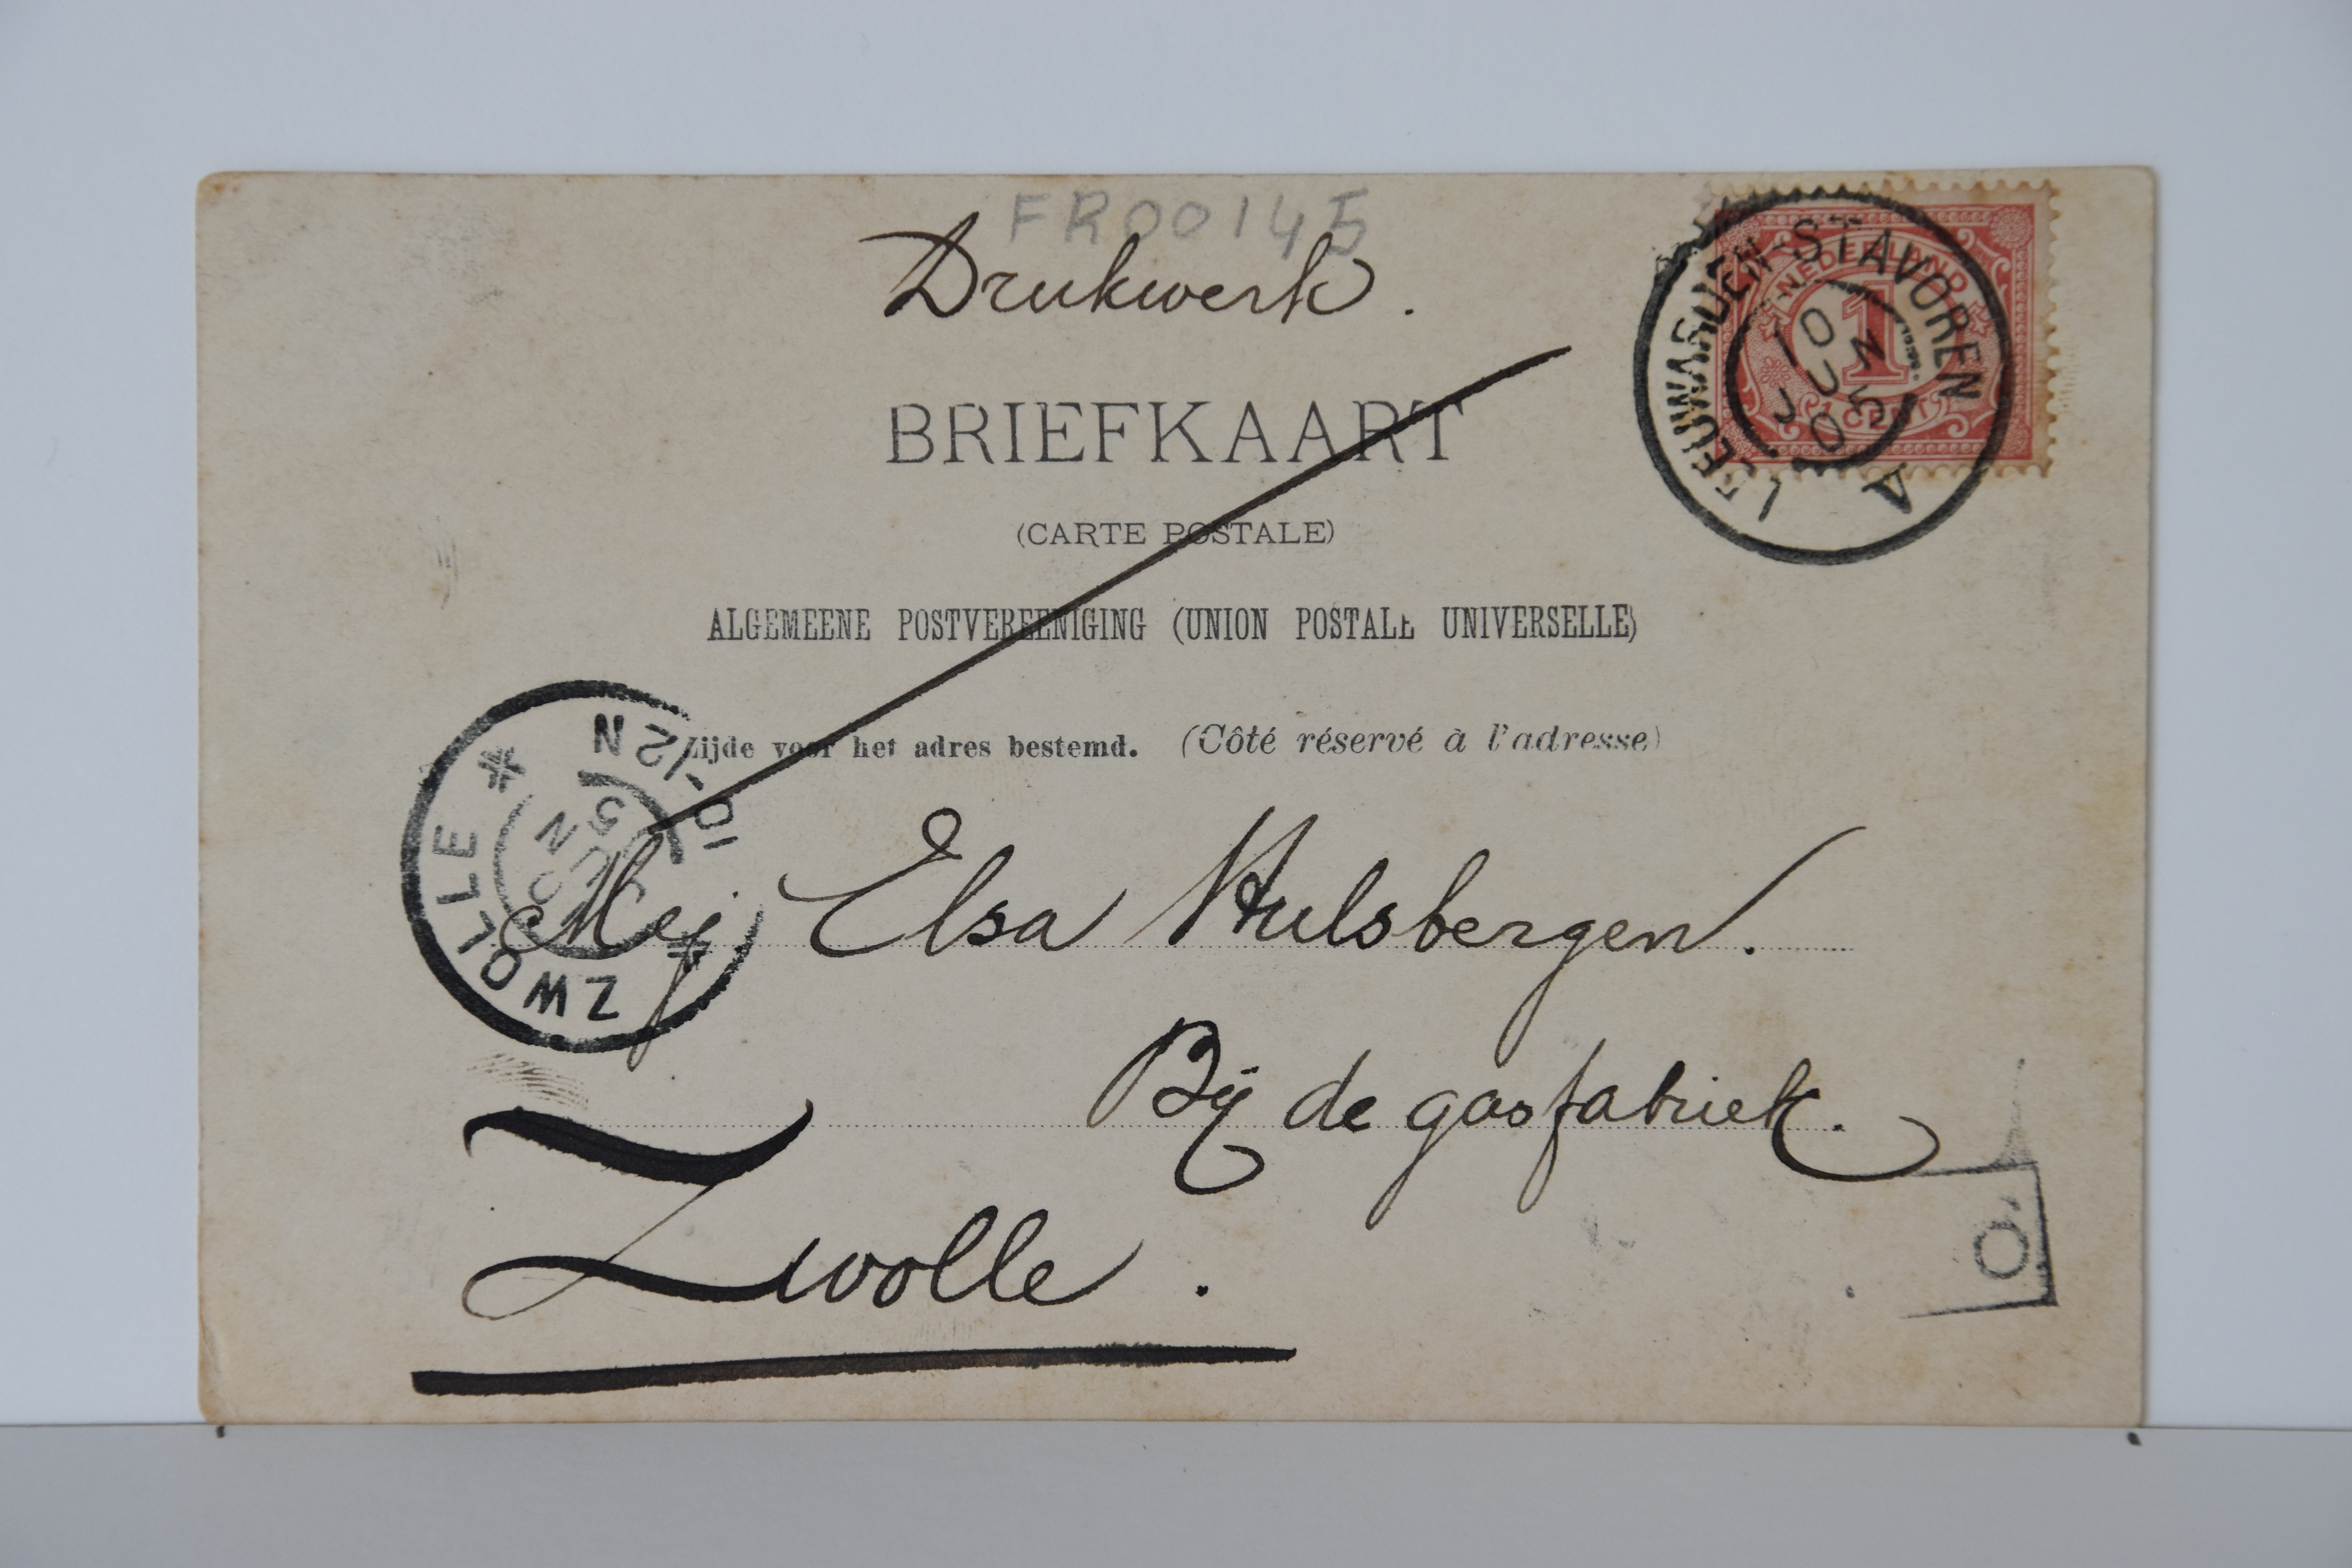 FR00145
Drukwerk.
NEDERLAND
1
1 CENT
LEEUWARDEN-STAVOREN
A
10 JUN 05
BRIEFKAART
(CARTE POSTALE)
ALGEMEENE POSTVEREENIGING (UNION POSTALE UNIVERSELLE)
Zijde voor het adres bestemd. (Côté réservé à l'adresse)
ZWOLLE
10-12N
JUN
Mej Elsa Hulsbergen.
Bij de gasfabriek.
Zwolle.
O.